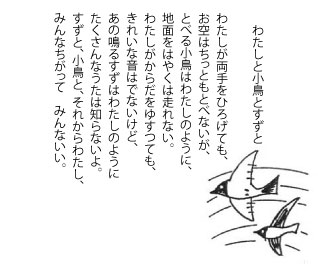 わたしと小鳥とすずと
わたしが両手をひろげても、
お空はちっともとべないが、
とべる小鳥はわたしのように、
地面をはやくは走れない。
わたしがからだをゆすっても、
きれいな音はでないけど、
あの鳴るすずはわたしのように
たくさんなうたは知らないよ。
すずと、小鳥と、それからわたし、
みんなちがって　みんないい。